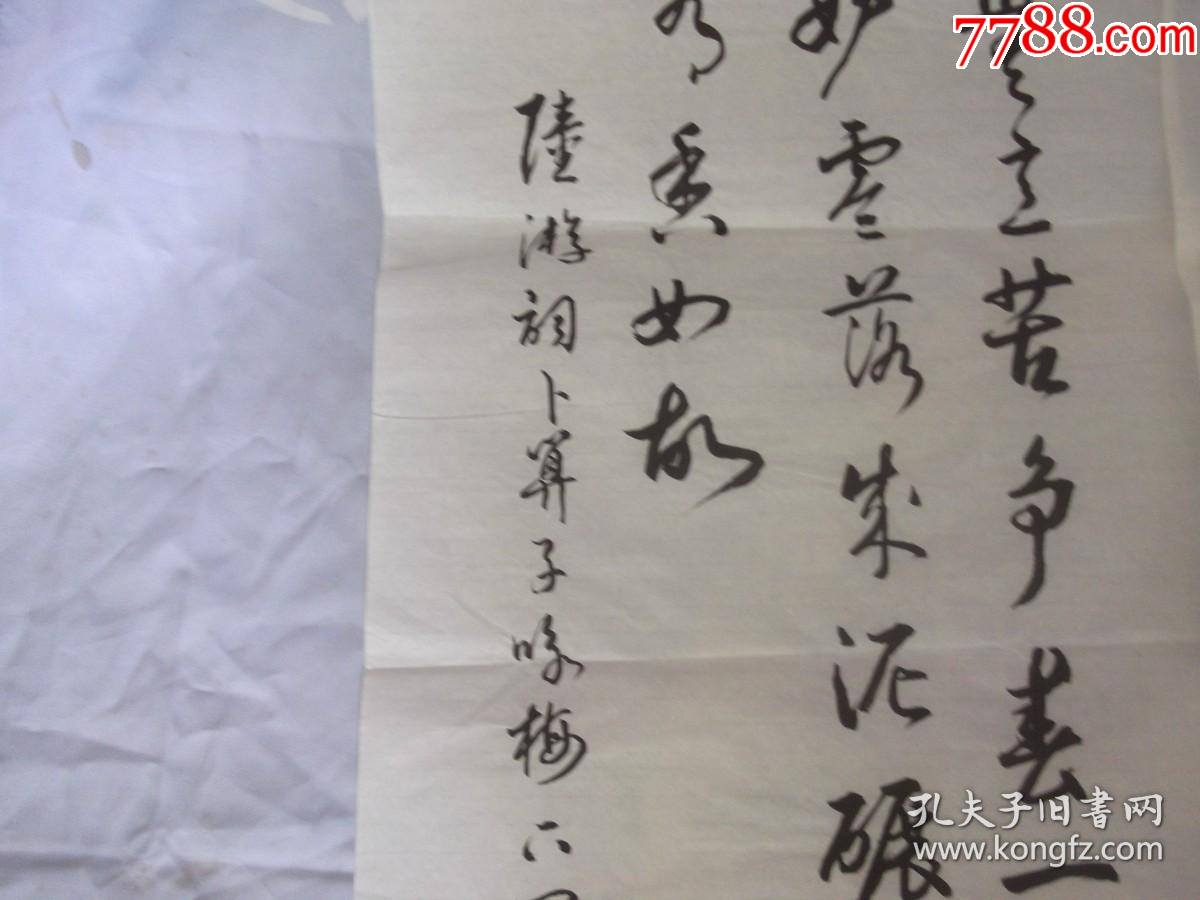 7788.com
意苦争春一
妒零落成泥碾
有香如故
陸游詞卜算子咏梅
孔夫子旧书网
www.kongfz.com